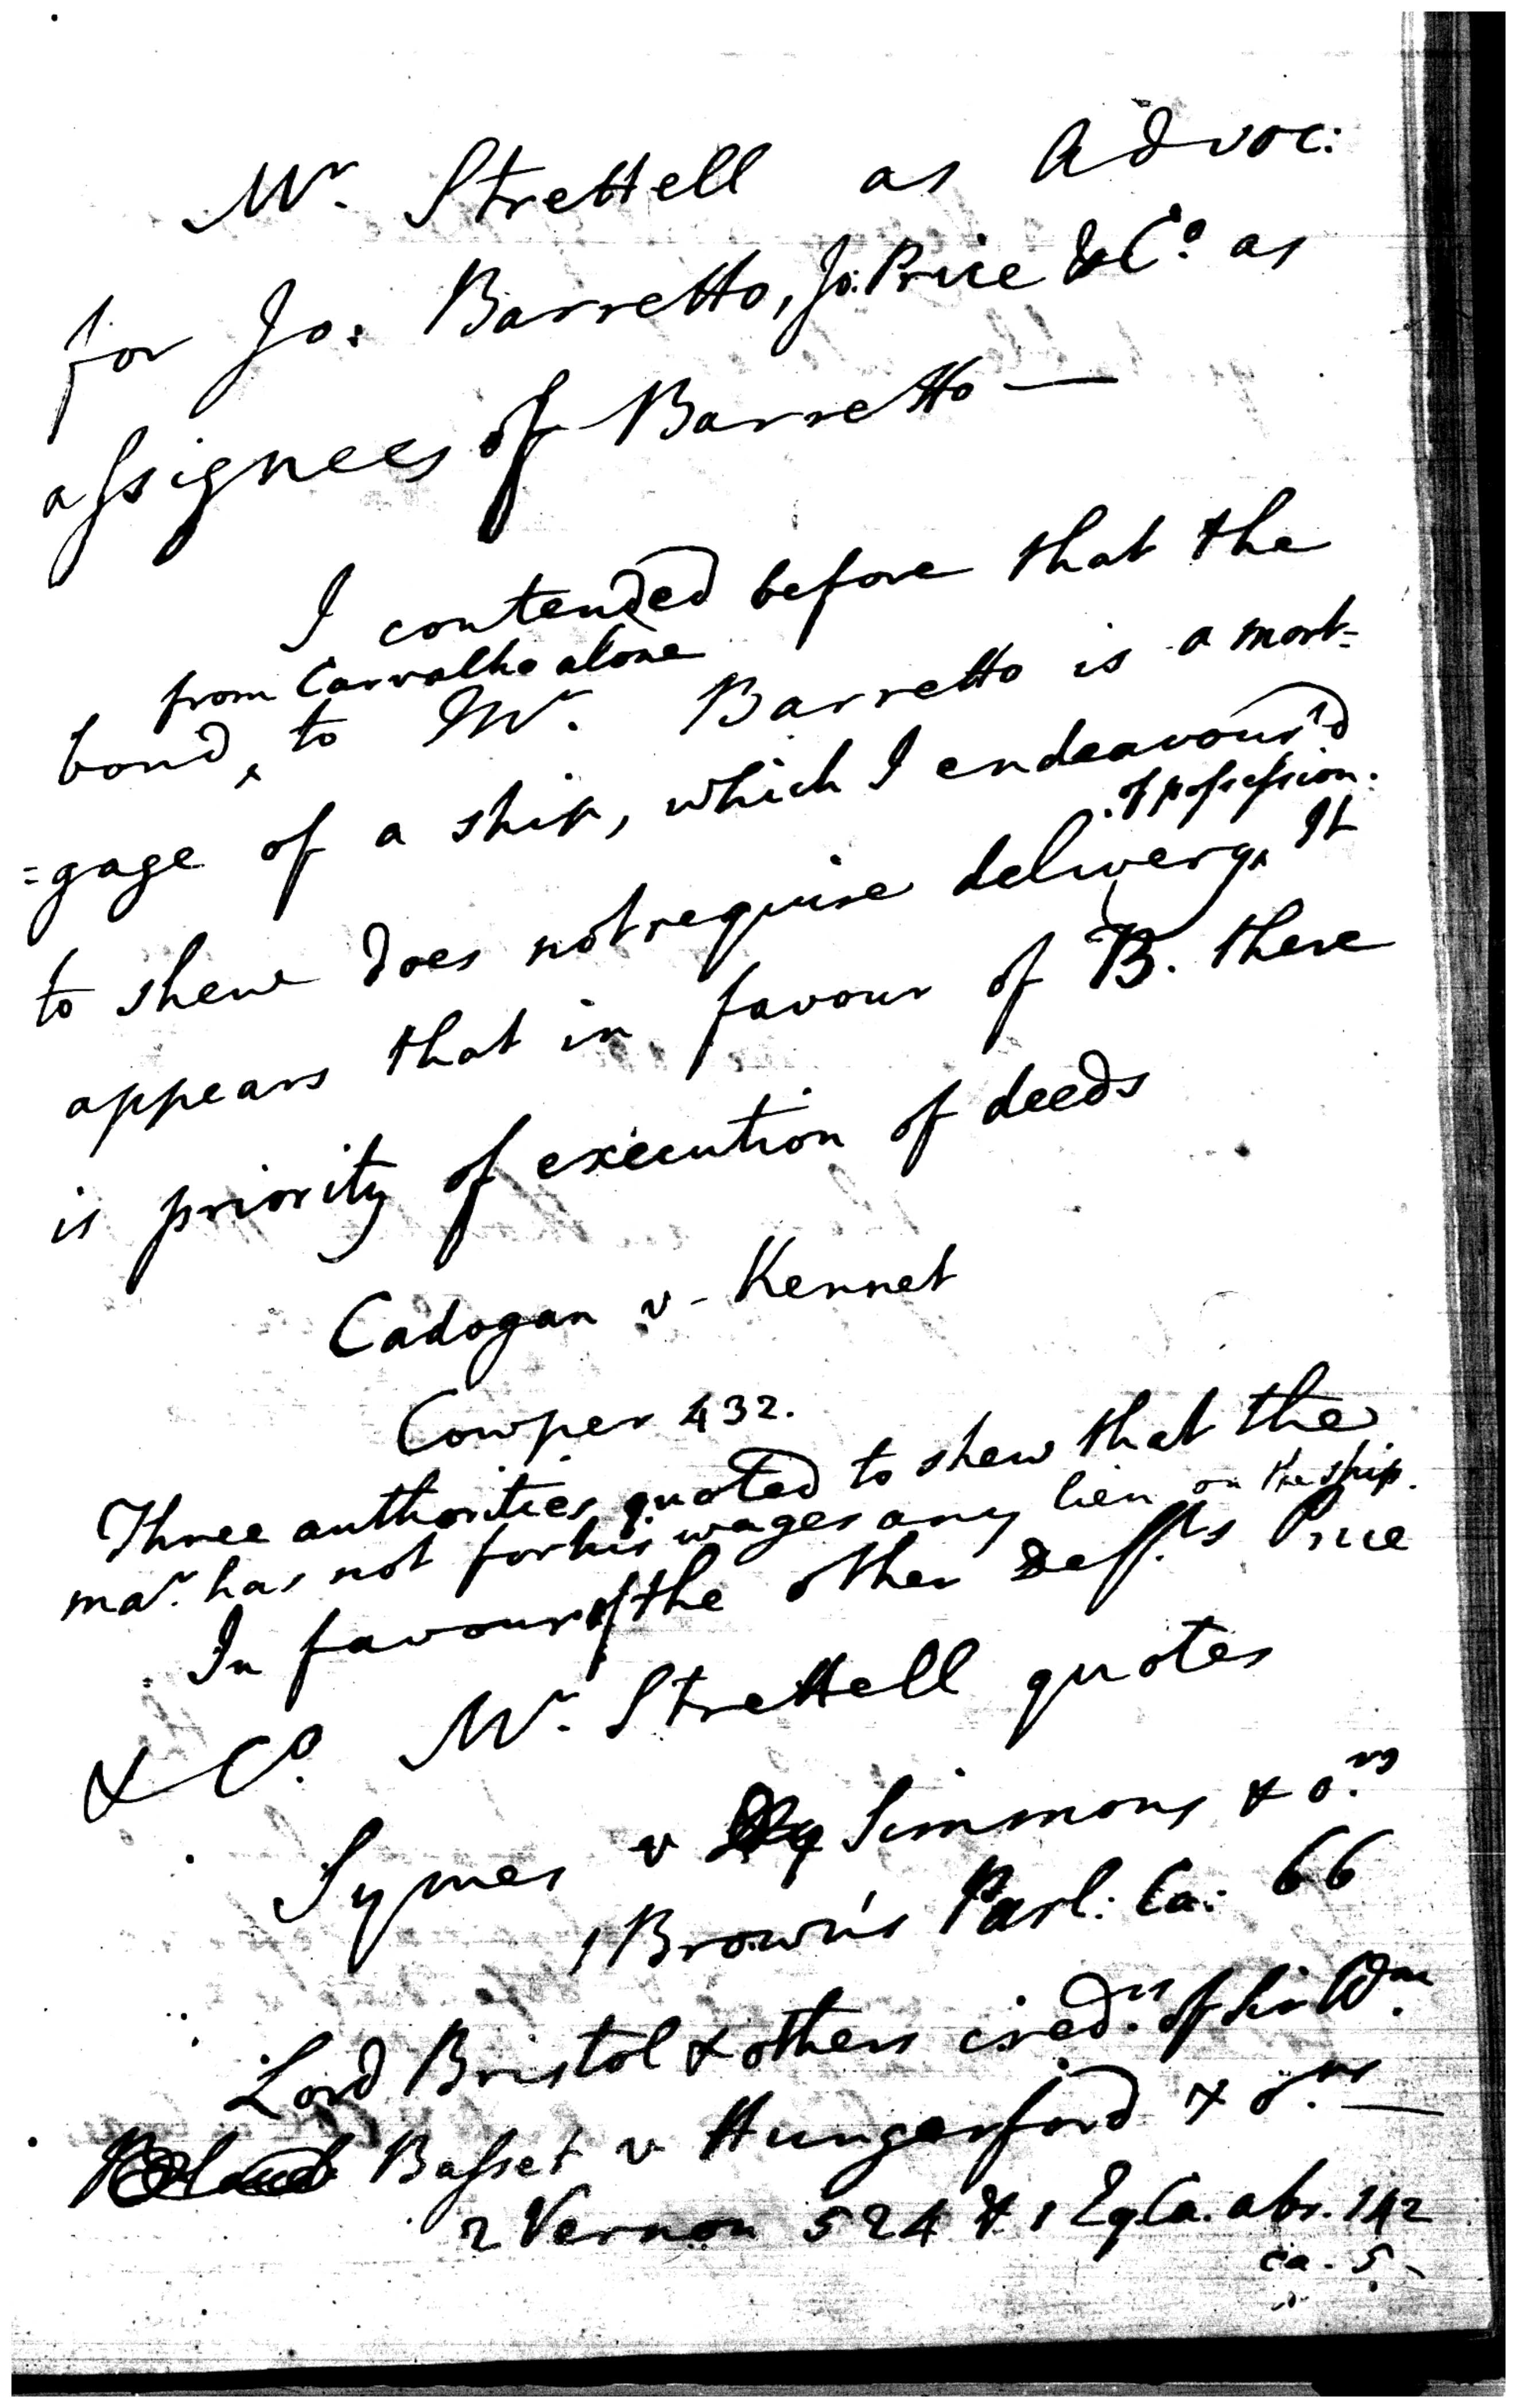 Mr. Strettell as Advoc:
for Jo: Barretto, Jo: Price & Co. as
assignees of Barretto —
I contended before that the
from Carvalho alone
bond ‸ to Mr. Barretto is a mort=
=gage of a ship, which I endeavour'd
of possession.
to shew does not require delivery ‸ It
appears that in favour of B. there
is priority of execution of deeds
Cadogan v - Kennet
Cowper 432.
Three authorities quoted to shew that the
mar. has not for his wages any lien on the ship.
In favour of the other Defts Price
& Co. Mr. Strettell quotes
Symes v Simmons & ors
1 Brown's Parl: Ca: 66
Lord Bristol & others credrs of Sir Wm
Basset v Hungerford & ors. —
2 Vernon 524 & 1 Eq Ca. abr. 142
ca. 5